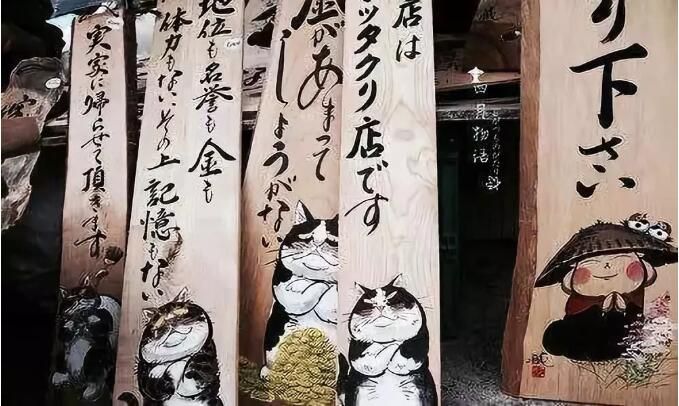 り下さい
店は
ッタクリ店です
金があまって
しょうがない
地位も名誉も金も
体力もない、その上記憶もない
実家に帰らせて頂きます
四月物語
しがつものがたり